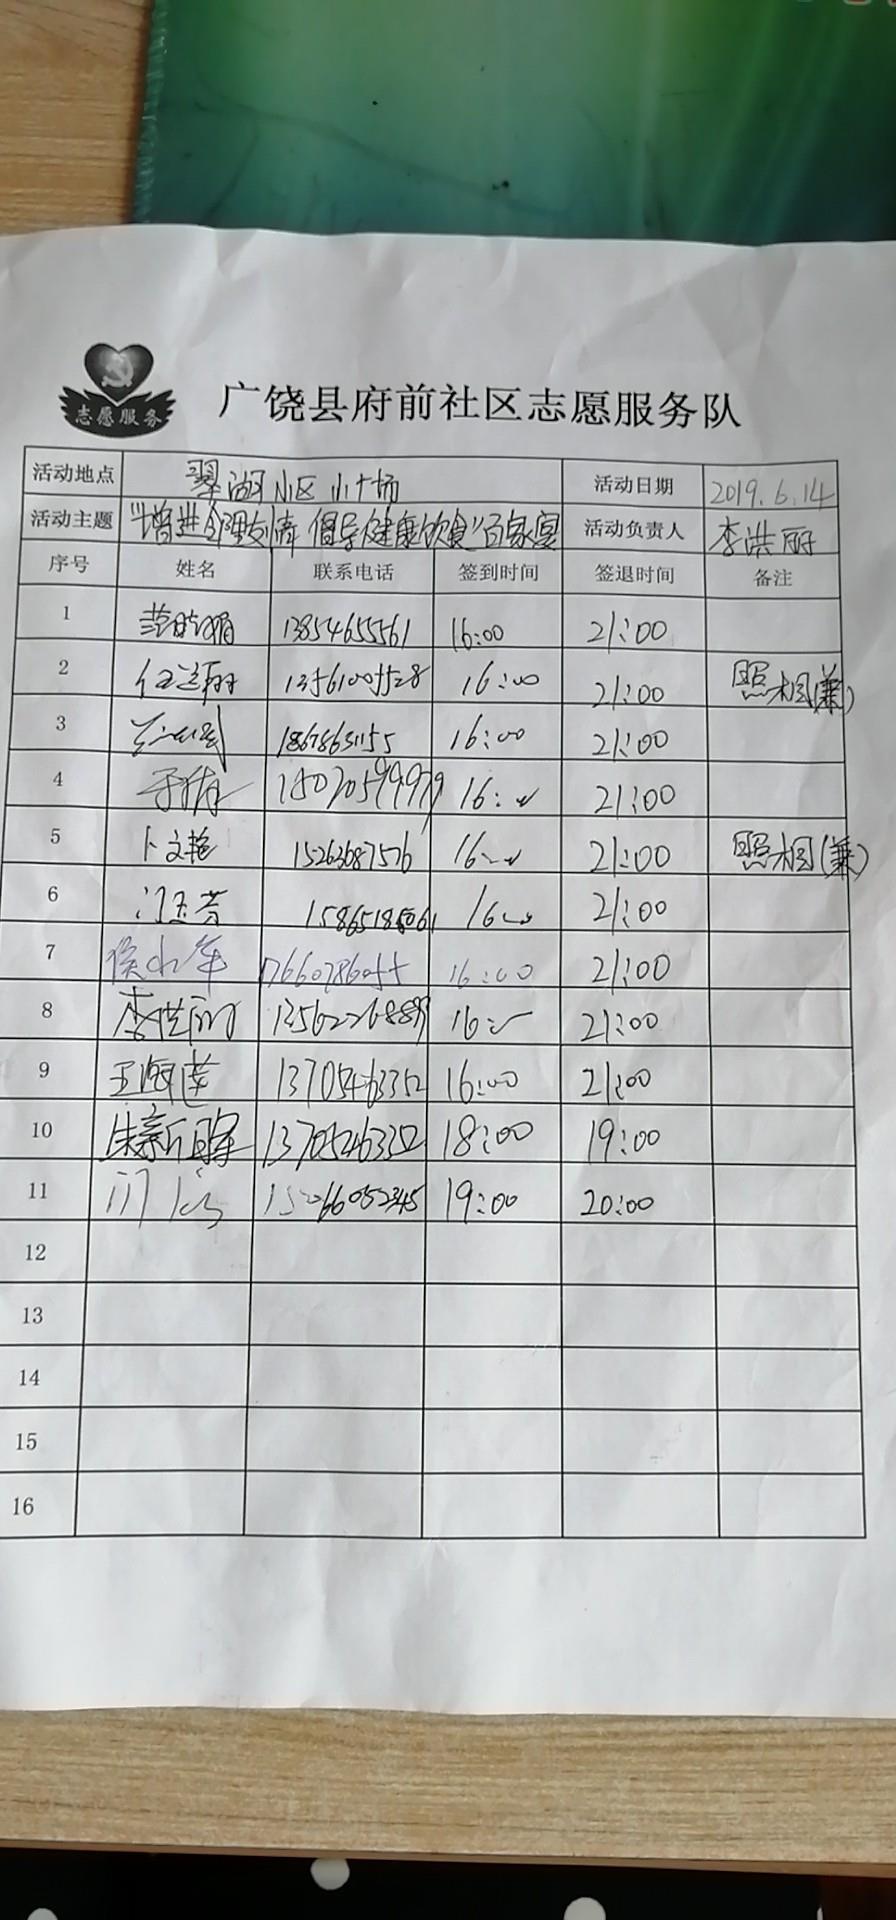 志愿服务
广饶县府前社区志愿服务队
活动地点 翠湖小区小广场 活动日期 2019.6.14
活动主题 "增进邻里友情 倡导健康饮食"百家宴 活动负责人 李洪丽
序号 姓名 联系电话 签到时间 签退时间 备注
1 13854655561 16:00 21:00
2 任兰丽 13561005528 16:00 21:00 照相(兼)
3 18678631155 16:00 21:00
4 16:00 21:00
5 卜文艳 15263687576 16:00 21:00 照相(兼)
6 门玉芳 16:00 21:00
7 17660786055 16:00 21:00
8 李洪丽 13562268899 16:00 21:00
9 王海莲 13705463352 16:00 21:00
10 13705463352 18:00 19:00
11 19:00 20:00
12
13
14
15
16